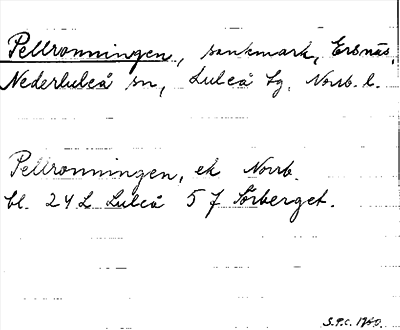 Pellronningen, sankmark, Ersnäs,
Nederluleå sn, Luleå tg, Norrb. l.
Pellronningen, ek Norrb.
bl. 24 L Luleå 5 f Sörberget.
S.P.C. 1960.